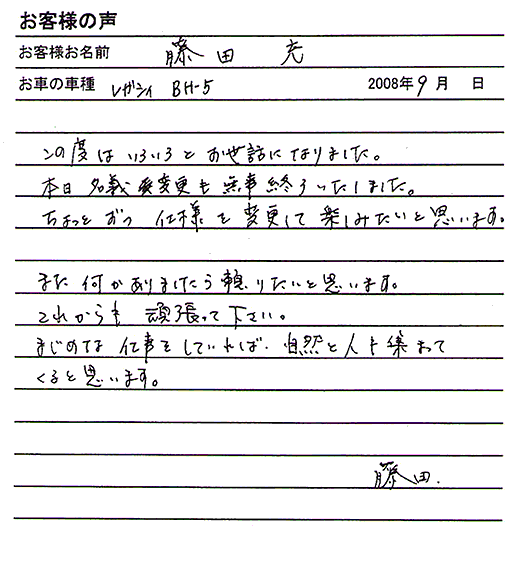 お客様の声
お客様お名前 藤田 充
お車の車種 レガシィ BH-5 2008年9月 日
この度はいろいろとお世話になりました。
本日名義変更も無事終了いたしました。
ちょっとずつ仕様を変更して楽しみたいと思います。
また何かありましたら頼りたいと思います。
これからも頑張って下さい。
まじめな仕事をしていれば、自然と人も集まって
くると思います。
藤田.